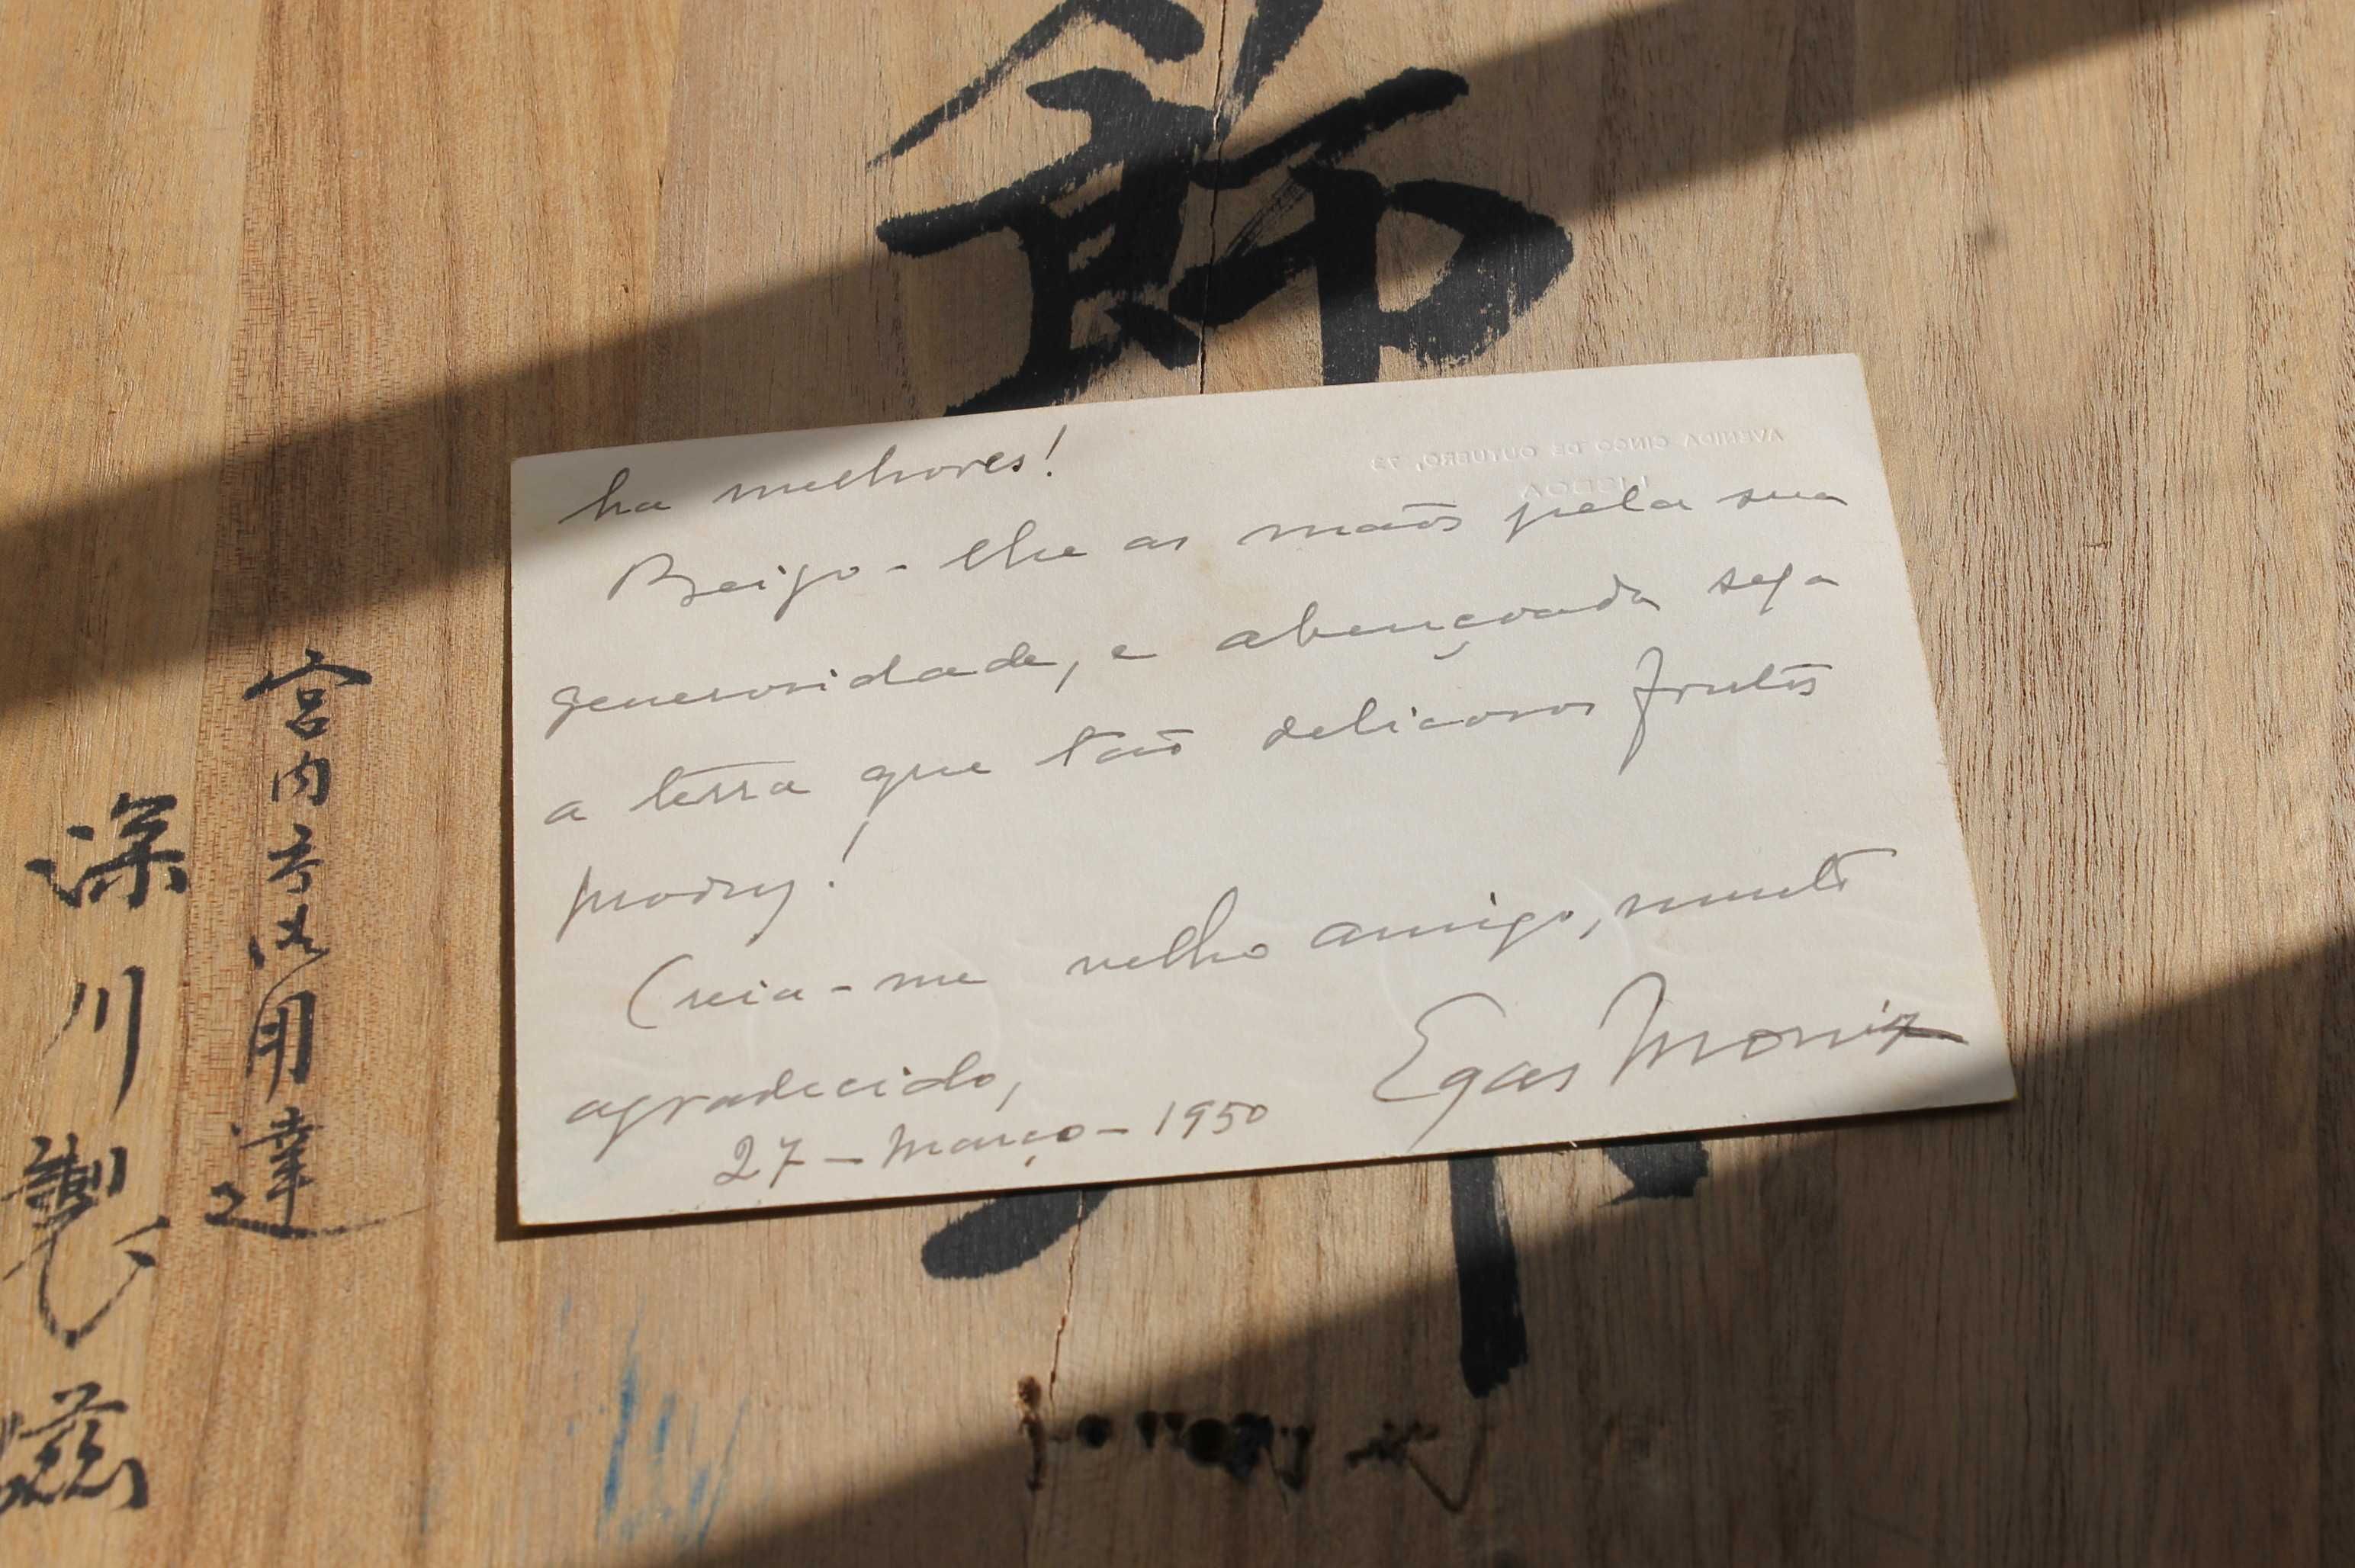 飾
宮内省御用達
深川製磁
AVENIDA CINCO DE OUTUBRO, 73
LISBOA
ha melhores!
Beijo-lhe as mãos pela sua
generosidade, e abençoada seja
a terra que tão deliciosos frutos
produz!
Creia-me velho amigo, muito
agradecido,
Egas Moniz
27-Março-1950